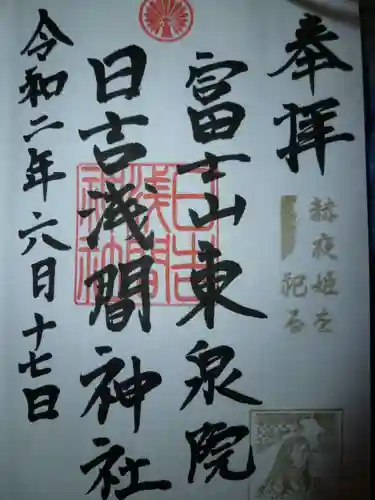 奉拝
赫夜姫を
祀る
富士山東泉院
日吉浅間神社
令和二年六月十七日